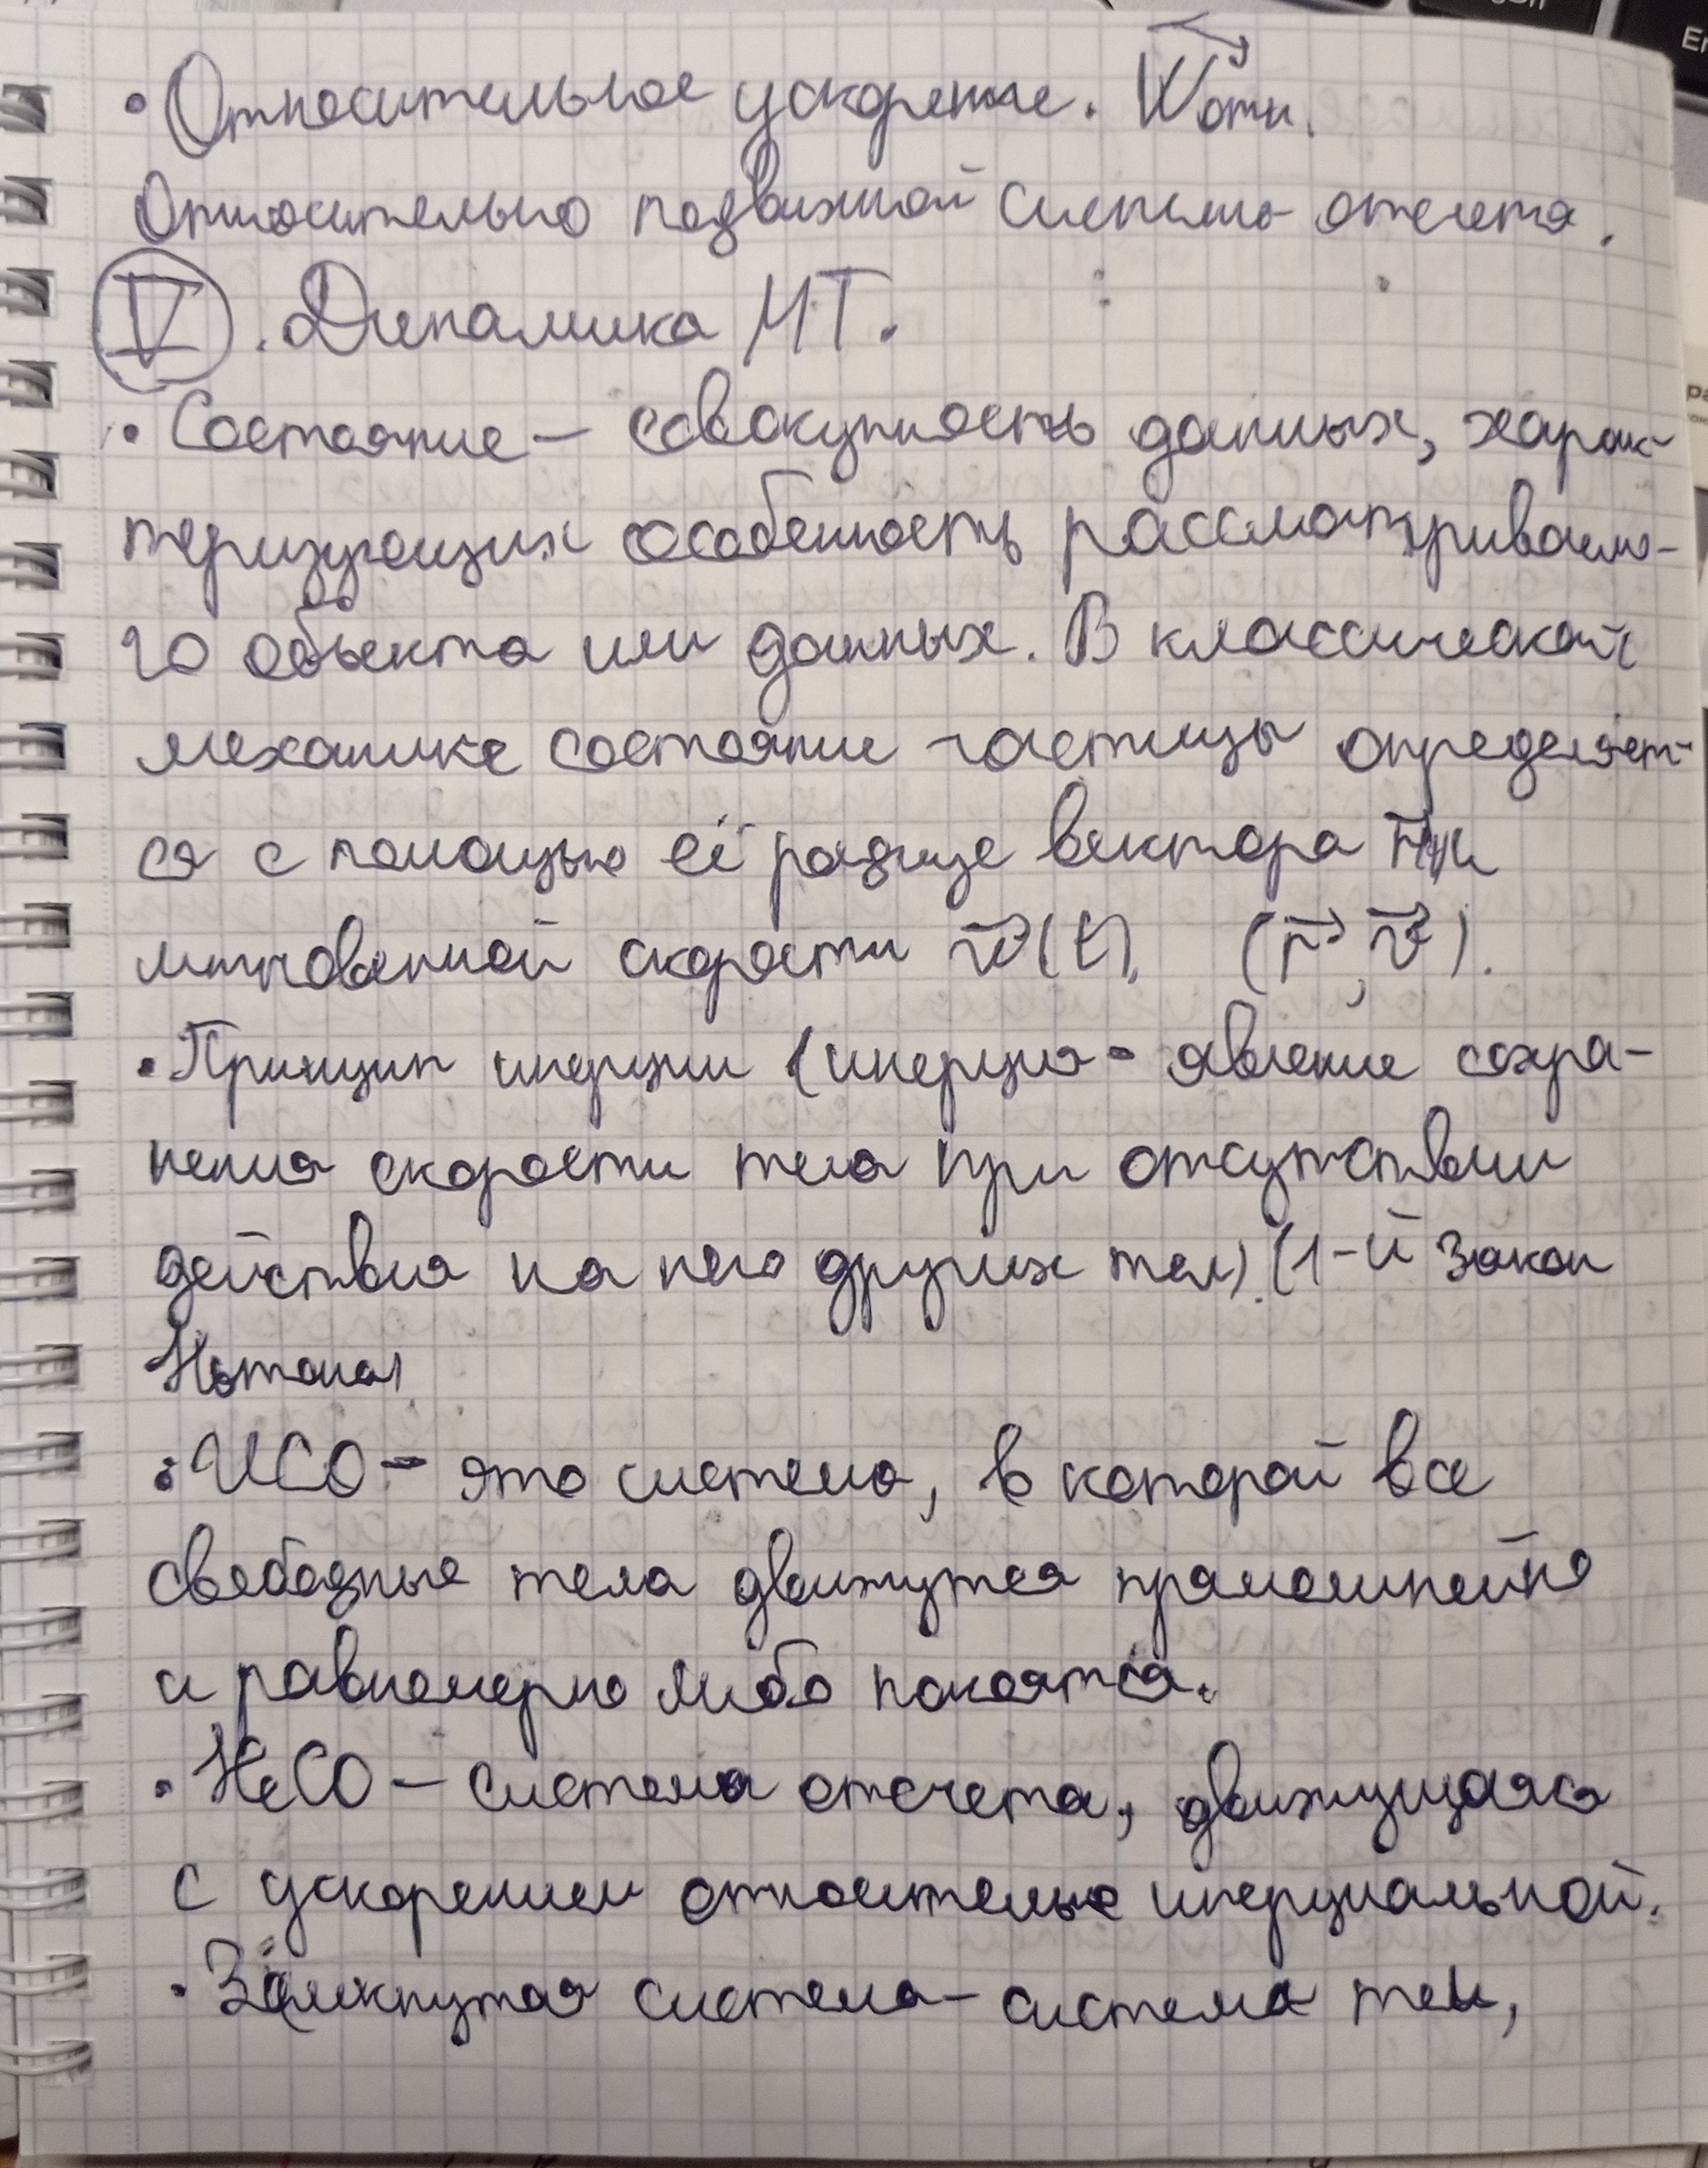 • Относительное ускорение. W⃗отн.
Относительно подвижной системы отсчета.
V. Динамика МТ.
• Состояние – совокупность данных, харак-
теризующих особенность рассматриваемо-
го объекта или данных. В классической
механике состояние частицы определяет-
ся с помощью её радиус вектора r⃗ и
мгновенной скорости v⃗(t). (r⃗, v⃗).
• Принцип инерции (инерция - явление сохра-
нения скорости тела при отсутствии
действия на него других тел). (1-й закон
Ньютона)
• ИСО - это система, в которой все
свободные тела движутся прямолинейно
и равномерно либо покоятся.
• НеСО – система отсчета, движущаяся
с ускорением относительно инерциальной.
• Замкнутая система – система тел,